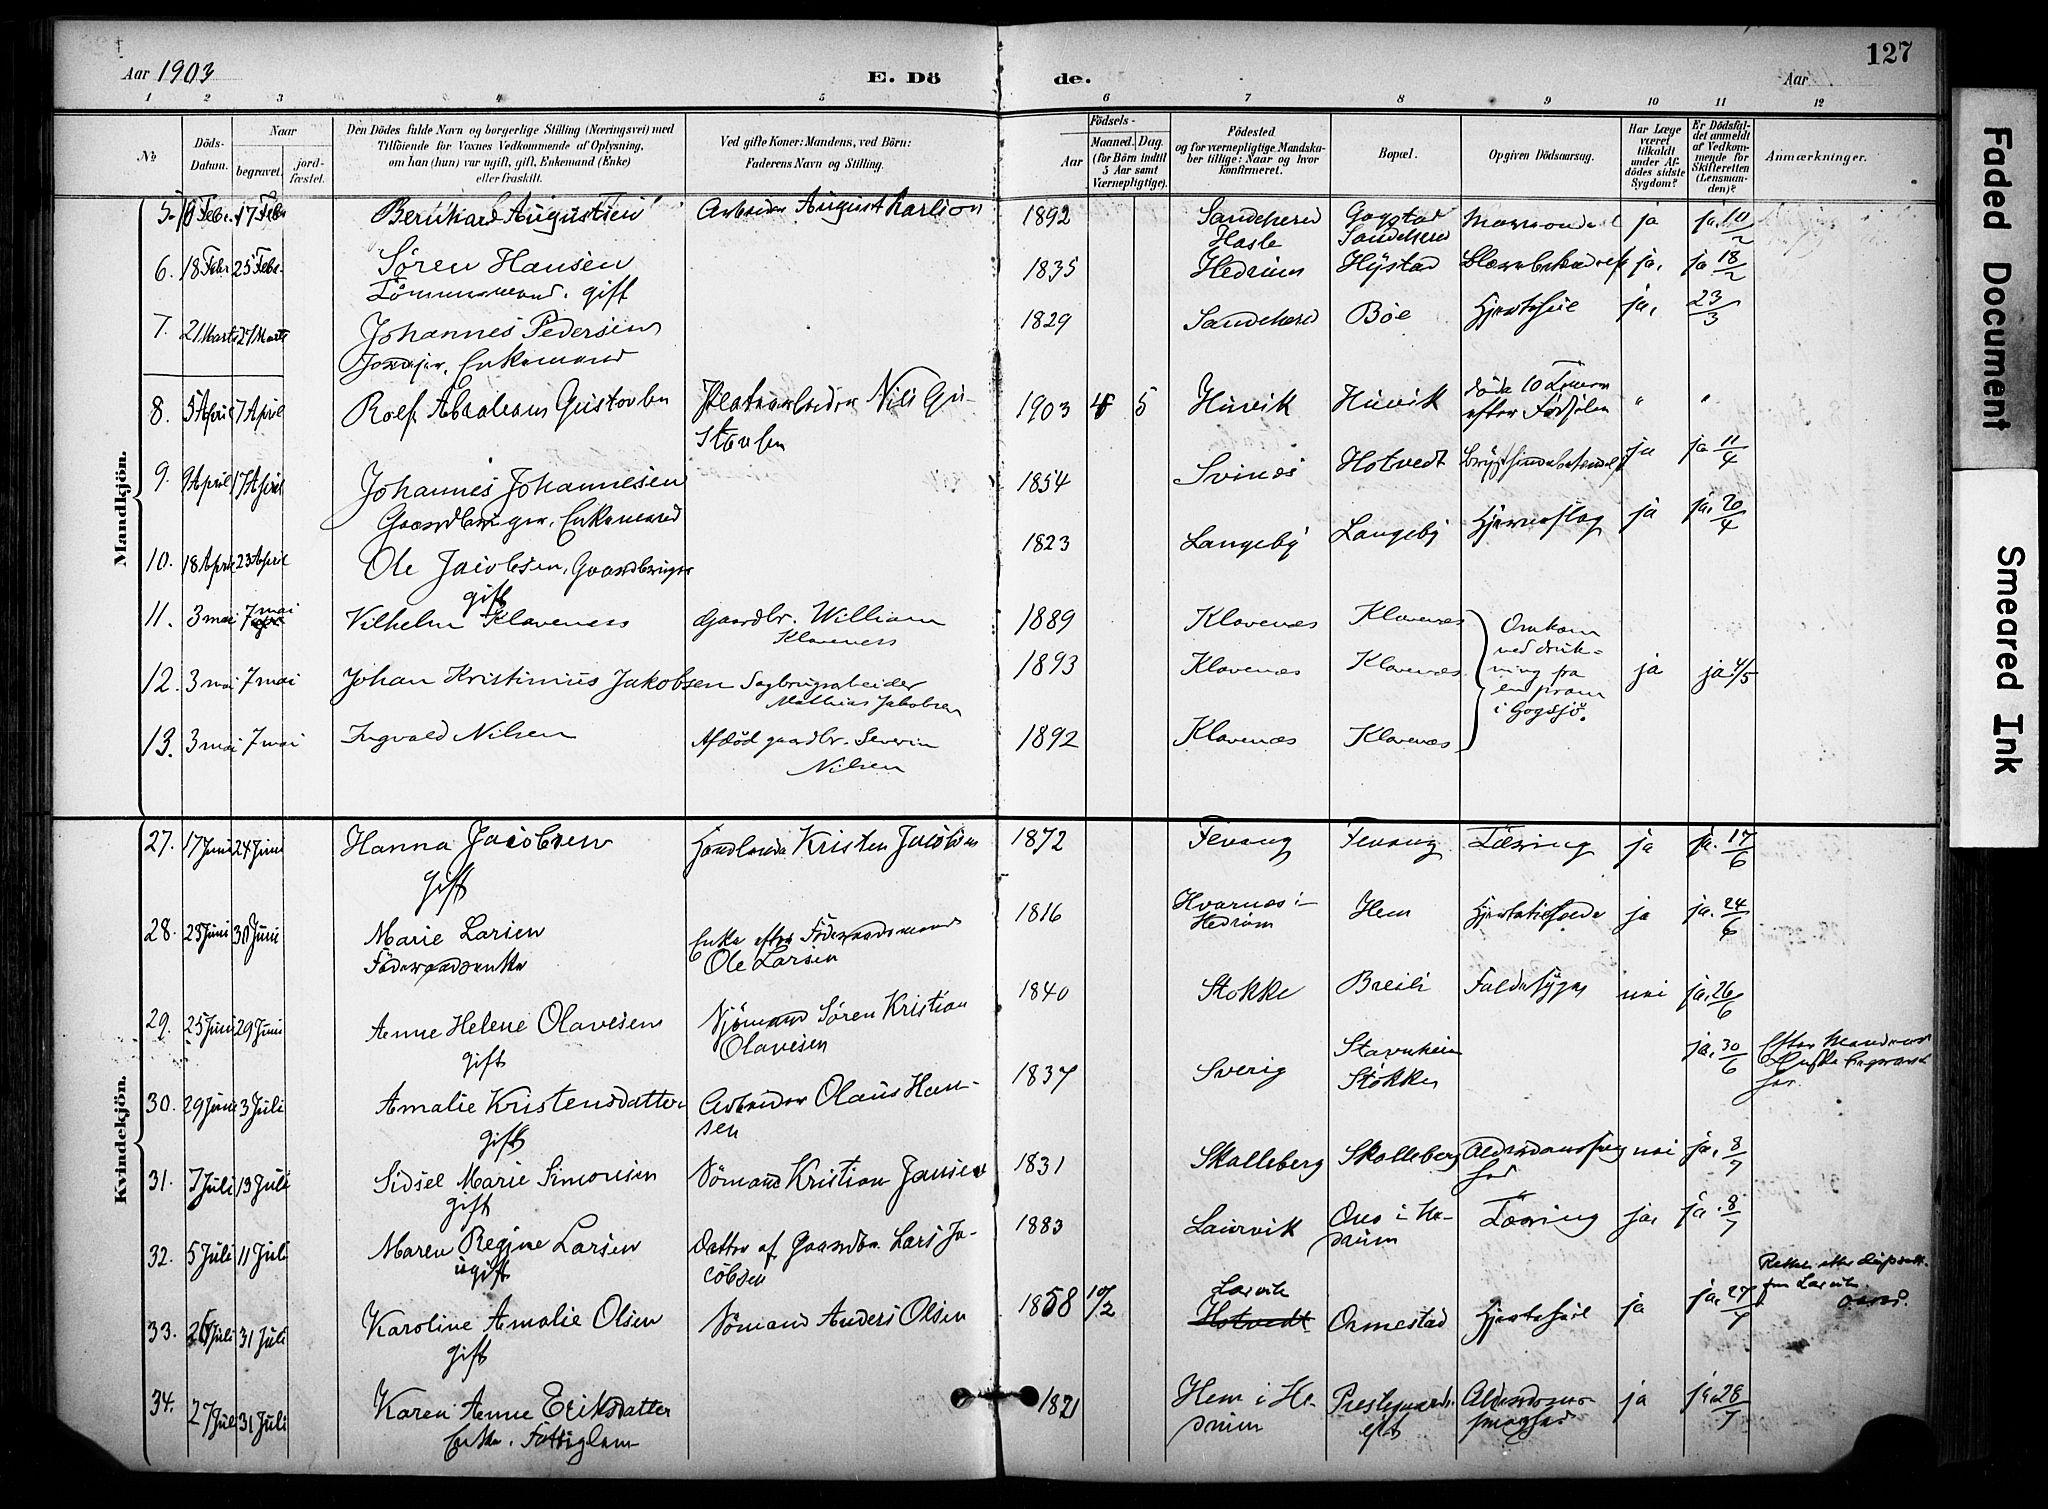 127
Aar 1903 E. Dö de. Aar
1 2 3 4 5 6 7 8 9 10 11 12
No
Döds-Datum.
Naar begravet. jordfæstet.
Den Dödes fulde Navn og borgerlige Stilling (Næringsvei) med Tilföiende for Voxnes Vedkommende af Oplysning, om han (hun) var ugift, gift, Enkemand (Enke) eller fraskilt.
Ved gifte Koner: Mandens, ved Börn: Faderens Navn og Stilling.
Födsels-
Aar
Maaned. Dag. (for Börn indtil 5 Aar samt Værnepligtige).
Födested og for værnepligtige Mandskaber tillige: Naar og hvor konfirmeret.
Bopæl.
Opgiven Dödsaarsag.
Har Læge været tilkaldt under Afdödes sidste Sygdom?
Er Dödsfaldet anmeldt af Vedkommende for Skifteretten (Lensmanden)?
Anmærkninger.
Mandkjön.
5. 17 Febr Bernhard Augustsen Arbeider August Karlson 1892 Sandeherred Gogstad Sandeherred ja ja
6. 18 Febr 25 Febr Søren Hansen Tömmermand. gift 1835 Hasle Hedrum Hystad ja, ja 18/2
7. 21 Marts 27 Marts Johannes Pedersen Enkemand 1829 Sandeherred Böe Hjertefeil ja, 23/3
8. 5 April 7 April Rolf Abraham Gustavsen Nils Gustavsen 1903 4 5 Huvik Huvik döde 10 Timer efter Födselen " "
9. 9 April 17 April Johannes Johannesen Gaardbruger, Enkemand 1854 Svinæs Hotvedt ja ja 11/4
10. 18 April 23 April Ole Jacobsen, Gaardbruger gift 1823 Langeby Langeby Hjerneslag ja ja. 20/4
11. 3 mai 7 mai Vilhelm Klaveness Gaardbr. William Klaveness 1889 Klavenæs Klavenæs
12. 3 mai 7 mai Johan Kristinius Jakobsen Sagbrugsarbeider Mathias Jakobsen 1893 Klavenæs Klavenæs Omkom ved drukning fra en pram i Gogsjö. ja ja 4/5
13. 3 mai 7 mai Ingvald Nilsen Afdöd gaardbr. Severin Nilsen 1892 Klavenæs Klavenæs
Kvindekjön.
27. 17 Juni 24 Juni Hanna Jacobsen gift Kristen Jacobsen 1872 Fevang Fevang Tæring ja ja. 17/6
28. 23 Juni 30 Juni Marie Larsen Föderaadsenke Enke efter Föderaadsmand Ole Larsen 1816 Kvarnæs i Hedrum Hem ja ja. 24/6
29. 25 Juni 29 Juni Anne Helene Olavesen gift Sjömand Sören Kristian Olavesen 1840 Stokke Breili Faldesyge nei ja. 26/6
30. 29 Juni 3 Juli Amalie Kristensdatter gift Arbeider Olaus Hansen 1837 Sverig Stokke ja. 30/6 Efter Mandens
31. 7 Juli 13 Juli Sidsel Marie Simonsen gift Sömand Kristian Jansen 1831 Skalleberg Skalleberg nei ja, 8/7
32. 5 Juli 11 Juli Maren Regine Larsen ugift Datter af Gaardbr. Lars Jacobsen 1883 Laurvik i Hedrum Tæring ja, ja. 8/7
33. 26 Juli 31 Juli Karoline Amalie Olsen gift Sömand Anders Olsen 1858 10/2 Larvik Hotvedt Ormestad Hjertefeil ja ja. 27/7 Rettet efter dåpsatt. fra Larvik.
34. 27 Juli 31 Juli Karen Anne Eriksdatter Enke. Fattiglem 1821 Hem i Hedrum ja ja 28/7
Faded Document
Smeared Ink